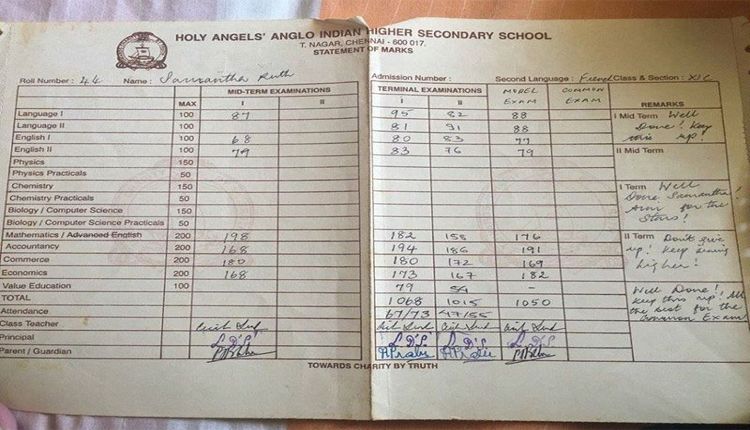 HOLY ANGELS' ANGLO INDIAN HIGHER SECONDARY SCHOOL
T. NAGAR, CHENNAI - 600 017.
STATEMENT OF MARKS
Roll Number : 44 Name : Samantha Ruth Admission Number : Second Language : French Class & Section : XI C
MAX MID-TERM EXAMINATIONS TERMINAL EXAMINATIONS MODEL EXAM COMMON EXAM REMARKS
I II I II
Language I 100 87 95 82 88
Language II 100 81 91 88
English I 100 68 80 83 77
English II 100 79 83 76 79
Physics 150
Physics Practicals 50
Chemistry 150
Chemistry Practicals 50
Biology / Computer Science 150
Biology / Computer Science Practicals 50
Mathematics / Advanced English 200 198 182 158 176
Accountancy 200 168 194 186 191
Commerce 200 180 180 172 169
Economics 200 168 173 167 182
Value Education 100 79 54 -
TOTAL 1068 1015 1050
Attendance 67/73 47/55
Class Teacher
Principal
Parent / Guardian
I Mid Term Well
Done! Keep
this up!
II Mid Term
I Term Well
Done Samantha!
Aim for the
Stars!
II Term Don't give
up! Keep
higher!
Well Done!
Keep this up! All
the best for the
Common Exam
TOWARDS CHARITY BY TRUTH